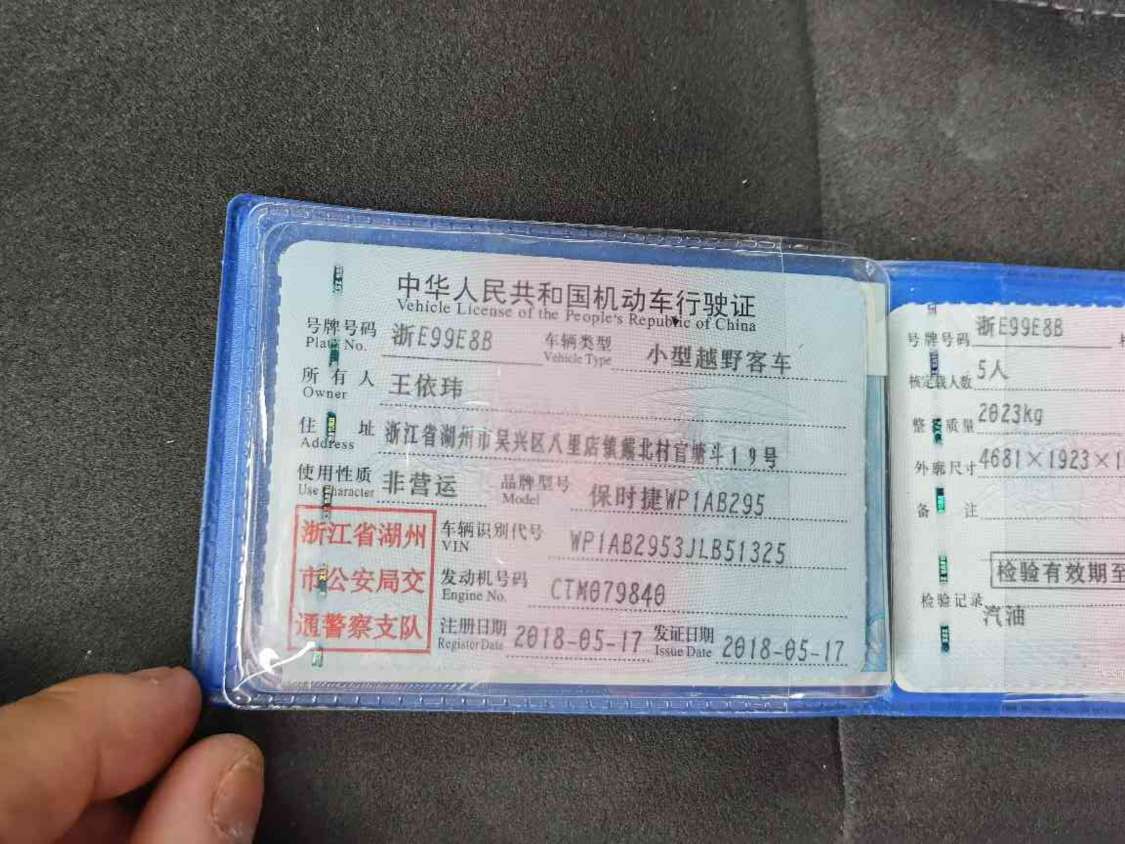 中华人民共和国机动车行驶证
Vehicle License of the People's Republic of China
号牌号码 浙E99E8B 车辆类型 小型越野客车
Plate No. Vehicle Type
所有人 王依玮
Owner
住址 浙江省湖州市吴兴区八里店镇戴北村官塘斗19号
Address
使用性质 非营运 品牌型号 保时捷WP1AB295
Use Character Model
浙江省湖州
市公安局交
通警察支队
车辆识别代号 WP1AB2953JLB51325
VIN
发动机号码 CTM079840
Engine No.
注册日期 2018-05-17 发证日期 2018-05-17
Register Date Issue Date
号牌号码 浙E99E8B
核定载人数 5人
整备质量 2023kg
外廓尺寸 4681×1923×1
备注
检验有效期至
检验记录
汽油